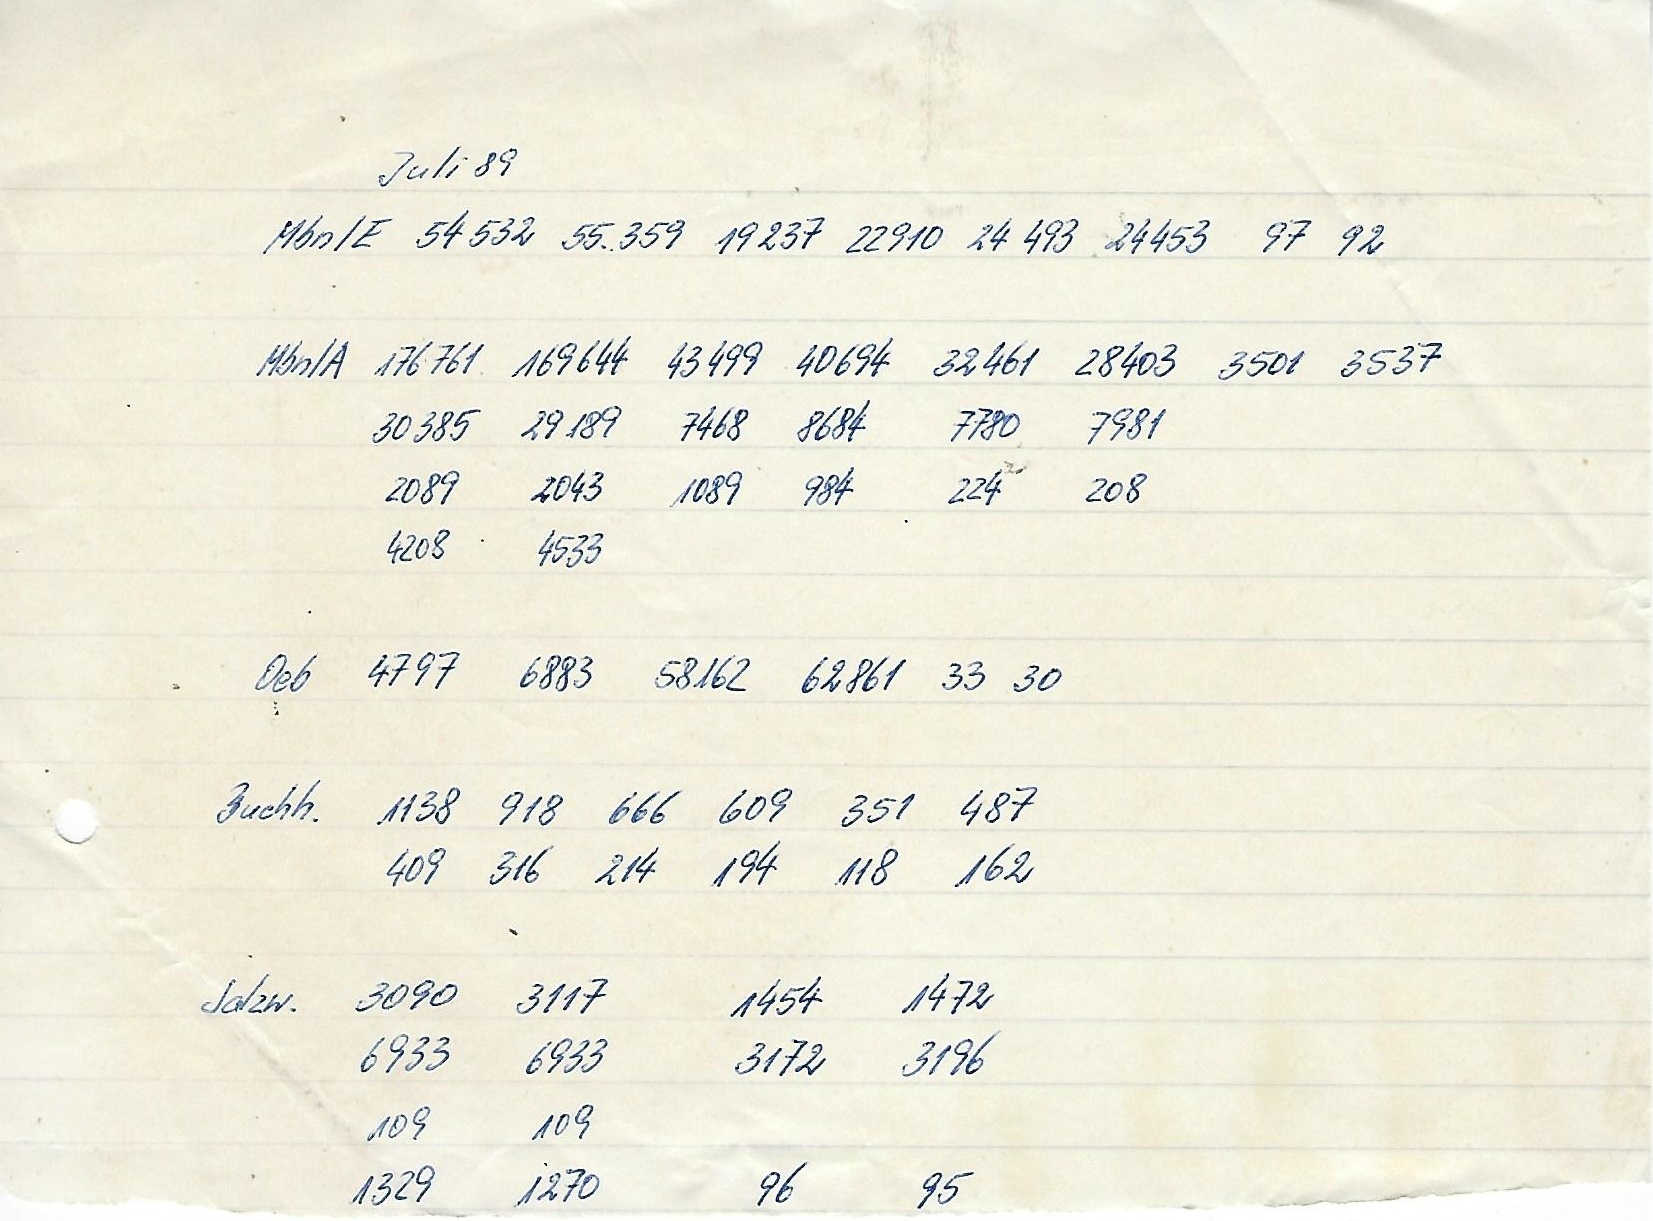 Juli 89
Mbn/E 54 532 55.359 19 237 22910 24 493 24453 97 92
Mbn/A 176 761 169 644 43 499 40694 32 461 28403 3501 3537
30 385 29 189 7468 8684 7780 7981
2089 2043 1089 984 224 208
4208 4533
Oeb 4797 6883 58162 62861 33 30
Buchh. 1138 918 666 609 351 487
409 316 214 194 118 162
Salzw. 3090 3117 1454 1472
6933 6933 3172 3196
109 109
1329 1270 96 95